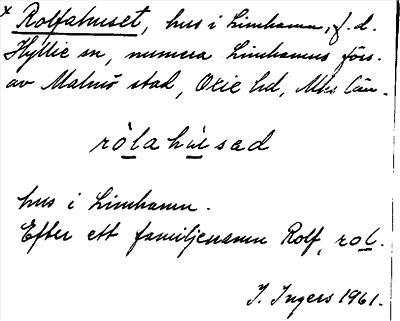 x Rolfahuset, hus i Limhamn, f. d.
Hyllie sn, numera Limhamns förs.
av Malmö stad, Oxie hd, Mhs län.
ròlahùsad
hus i Limhamn.
Efter ett familjenamn Rolf, rol.
I. Ingers 1961.